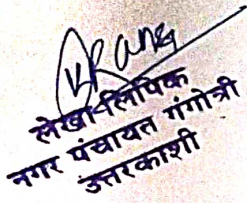 लेखा-लिपिक
नगर पंचायत गंगोत्री
उत्तरकाशी